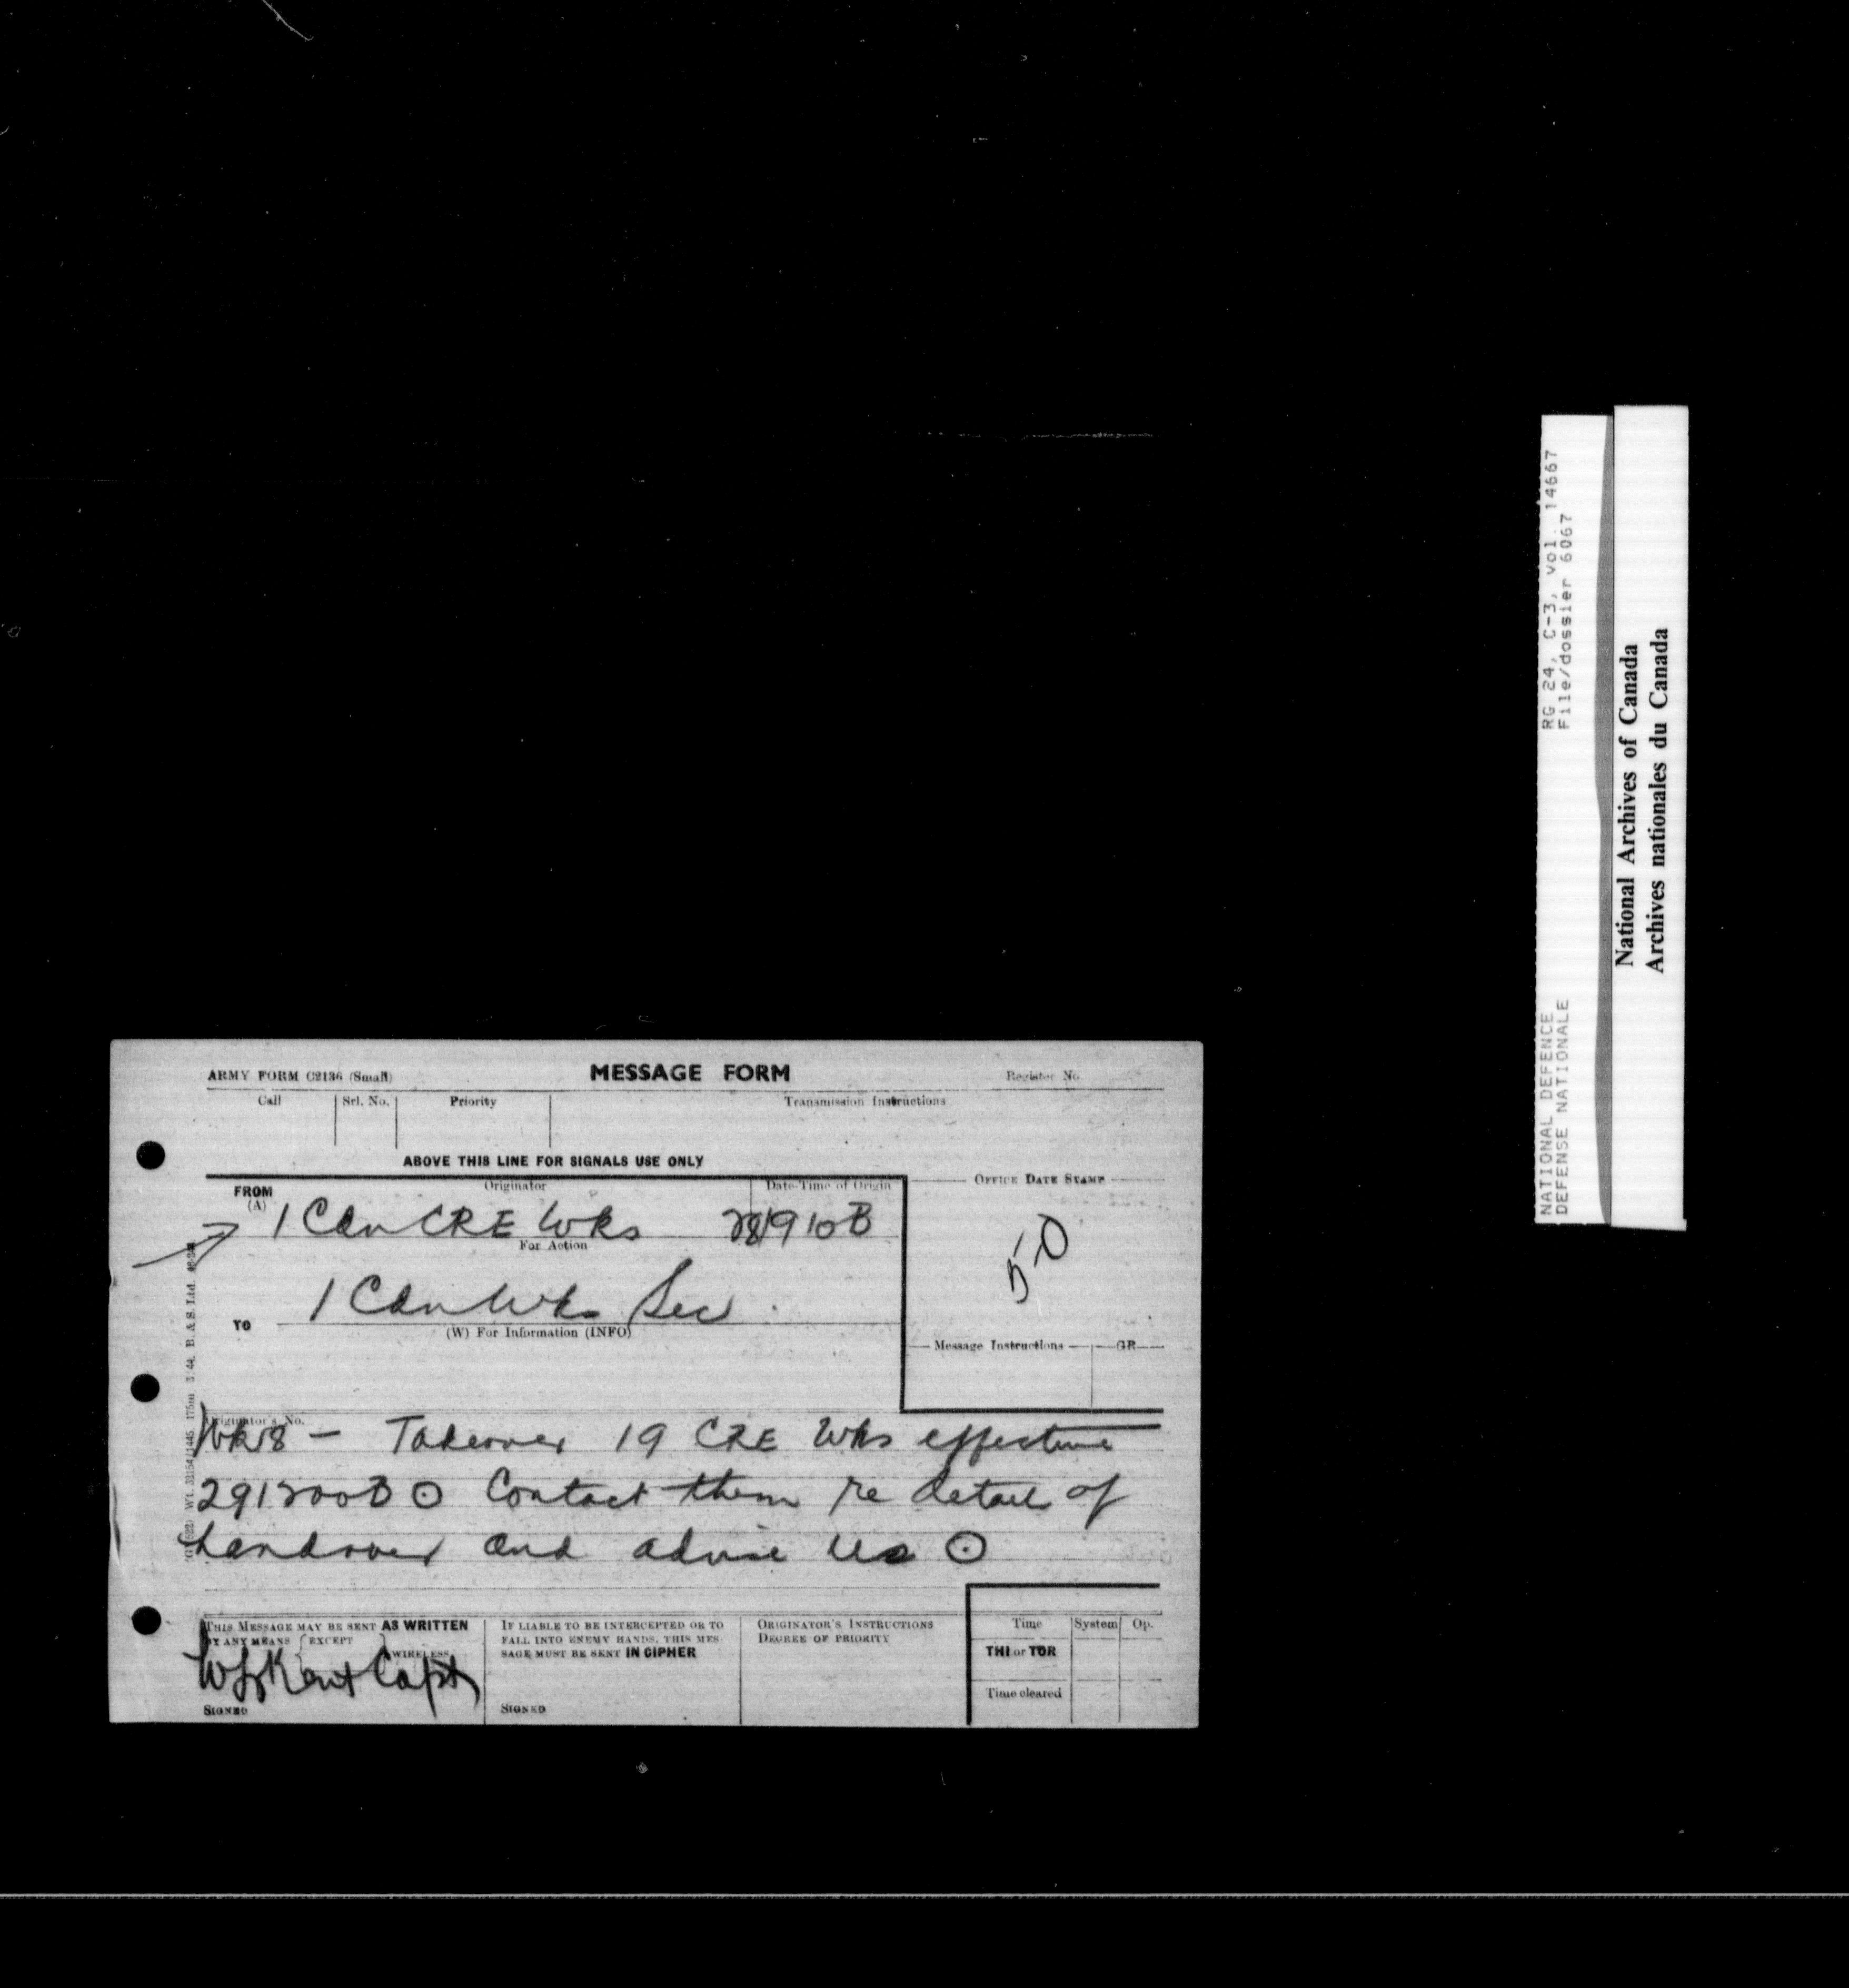 ARMY FORM C2136 (Small)
MESSAGE FORM
Register No.
Call
Srl. No.
Priority
Transmission Instructions
ABOVE THIS LINE FOR SIGNALS USE ONLY
FROM
(A)
Originator
Date-Time of Origin
OFFICE DATE STAMP
1 Cdn CRE Wks 281910B
For Action
TO
1 Cdn Wks Sec
(W) For Information (INFO)
Message Instructions
GR
Originator's No.
Takeover 19 CRE Wks effective
291200B ⊙ Contact them re details of
handover and advise us ⊙
THIS MESSAGE MAY BE SENT AS WRITTEN
BY ANY MEANS EXCEPT
WIRELESS
Kent Capt
SIGNED
IF LIABLE TO BE INTERCEPTED OR TO
FALL INTO ENEMY HANDS, THIS MES-
SAGE MUST BE SENT IN CIPHER
SIGNED
ORIGINATOR'S INSTRUCTIONS
DEGREE OF PRIORITY
Time
System
Op.
THI or TOR
Time cleared
RG 24, C-3, vol. 14667
File/dossier 6067
NATIONAL DEFENCE
DEFENSE NATIONALE
National Archives of Canada
Archives nationales du Canada